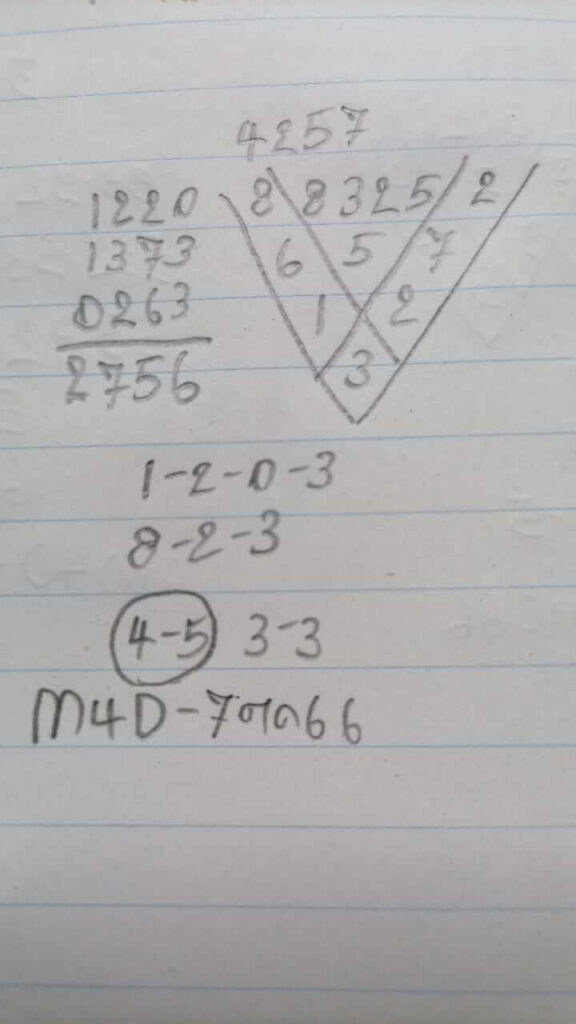 4257
1220
1373
0263
2756
8 8 3 2 5 2
6 5 7
1 2
3
1-2-0-3
8-2-3
4-5 3-3
M4D-7
66